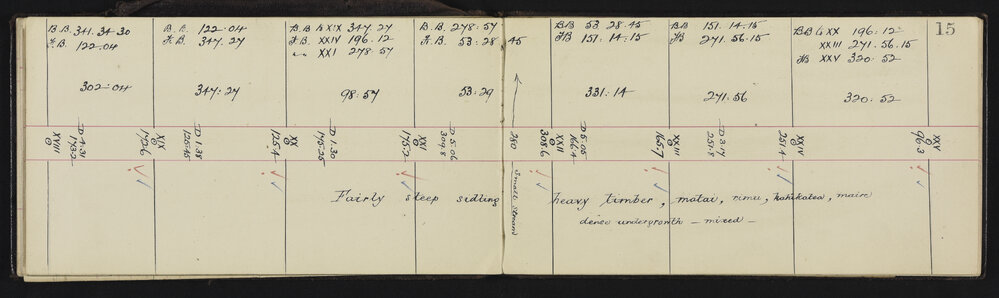 B.B. 341.34.30
F.B. 122-04
302-04
B.B. 122-04
F.B. 347.27
347:27
B.B to XIX 347.27
F.B. XXIV 196.12
" " XXI 278.57
98:57
B.B. 278:57
F.B. 53:28:45
53:29
BB 53 28.45
FB 151.14:15
331:14
BB 151.14.15
FB 271.56.15
271:56
BB to XX 196:12
XXIII 271.56.15
FB XXV 320:52
320:52
15
XVIII
D 4.31
173.2
172.6
D 1.38
125.45
XX
125.4
D 1.30
175.25
XXI
175.2
D 5.06
309.8
280
XXII
308.6
D 5.05
166.4
XXIII
165.7
D 3.17
251.8
XXIV
251.4
XXV
96.3
Small stream
Fairly steep sidling heavy timber, matai, rimu, kahikatea, maire
dense undergrowth - mixed -